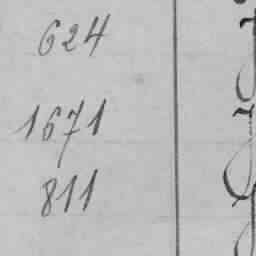 624
1671
811